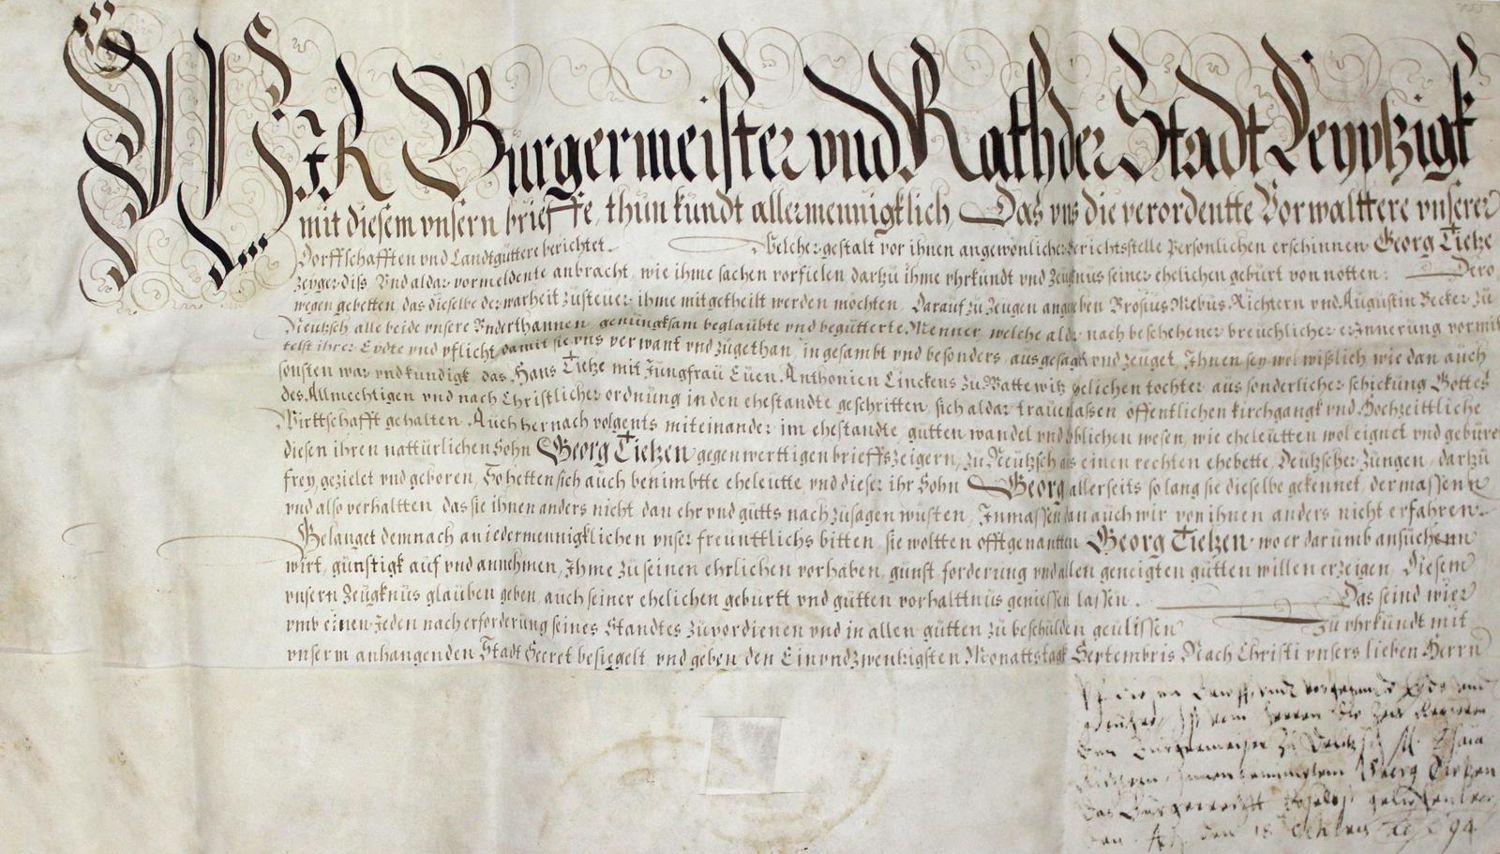 WIR Burgermeister vnd Rath der Stadt Leyptzigk
mit diesem vnsern brieffe, thun kundt allermennigklich, Das vns die verordentte Vorwalttere vnserer
Dorffschafften vnd Landtguttere berichtet. Welchergestalt vor ihnen an gewonlicher Gerichtsstelle Personlichen erschinnen Georg Tietze
Zeyger diss, Vnd aldar vormeldente anbracht, wie ihme sachen vorfielen darzu ihme vhrkundt vnd Zeugnus seiner ehelichen geburt von notten: Dero
wegen gebetten das dieselbe der warheit zusteuer ihme mitgetheilt werden mochten, Darauf zu Zeugen angegeben Brosius Mebus Richtern vnd Augustin Becker zu
Neutzsch alle beide vnsere Vnderthannen, genungksam beglaubte vnd begutterte Menner, welche alda nach beschehener breuchlicher erJnnerung vormit
telst ihrer Eydte vnd pflicht damit sie vns verwant vnd zugethan, in gesambt vnd besonders, ausgesagt vnd zeuget, Jhnen sey wol wißlich wie dan auch
sonsten war vnd kundigk, das Hans Tietze mit Jungfrau Euen, Anthonien Linckens zu gelichen tochter, aus sonderlicher schickung Gottes
des Allmechtigen vnd nach Christlicher ordnung in den ehestandte geschritten, sich aldar trauen lassen offentlichen kirchgangk vnd Hochzeittliche
Wirttschafft gehalten, Auch hernach volgents miteinander im ehestandte, gutten wandel vnd loblichen wesen, wie eheleutten wol eignet vnd geburet
diesen ihren natturlichen Sohn Georg Tietzen gegenwerttigen brieffszeigern, zu Neutzsch aus einen rechten ehebette, Deutzscher Zungen, darzu
frey, gezielet vnd geboren, So hetten sich auch benimbtte eheleutte vnd dieser ihr Sohn Georg allerseits so lang sie dieselbe gekennet, dermassenn
vnd also verhaltten, das sie ihnen anders nicht dan ehr vnd gutts nachzusagen wusten, Jnmassen dan auch wir von ihnen anders nicht erfahren.
Gelanget demnach an iedermennigklichen vnser freunttlichs bitten, sie woltten offtgenantten Georg Tietzen, wo er darumb ansuchenn
wirt, gunstigk auf vnd annehmen, Jhme zu seinen ehrlichen vorhaben, gunst forderung vnd allen geneigten gutten willen erzeigen, Diesem
vnsern Zeugknus glauben geben, auch seiner ehelichen geburtt vnd gutten vorhalttnus geniessen lassen. Das seind wier
vmb einen Jeden nach erforderung seines Standtes zuvordienen vnd in allen gutten zu beschulden geulissen Zu vhrkundt mit
vnserm anhangenden Stadt Secret besiegelt, vnd geben den Einvndzwentzigsten Monattstagk Septembris Nach Christi vnsers lieben Herrn
diesen
Ist dem Herren die Zeit
den Burgermeister zu M.
Georg Tietzen
das Burgerrecht
den 18 94